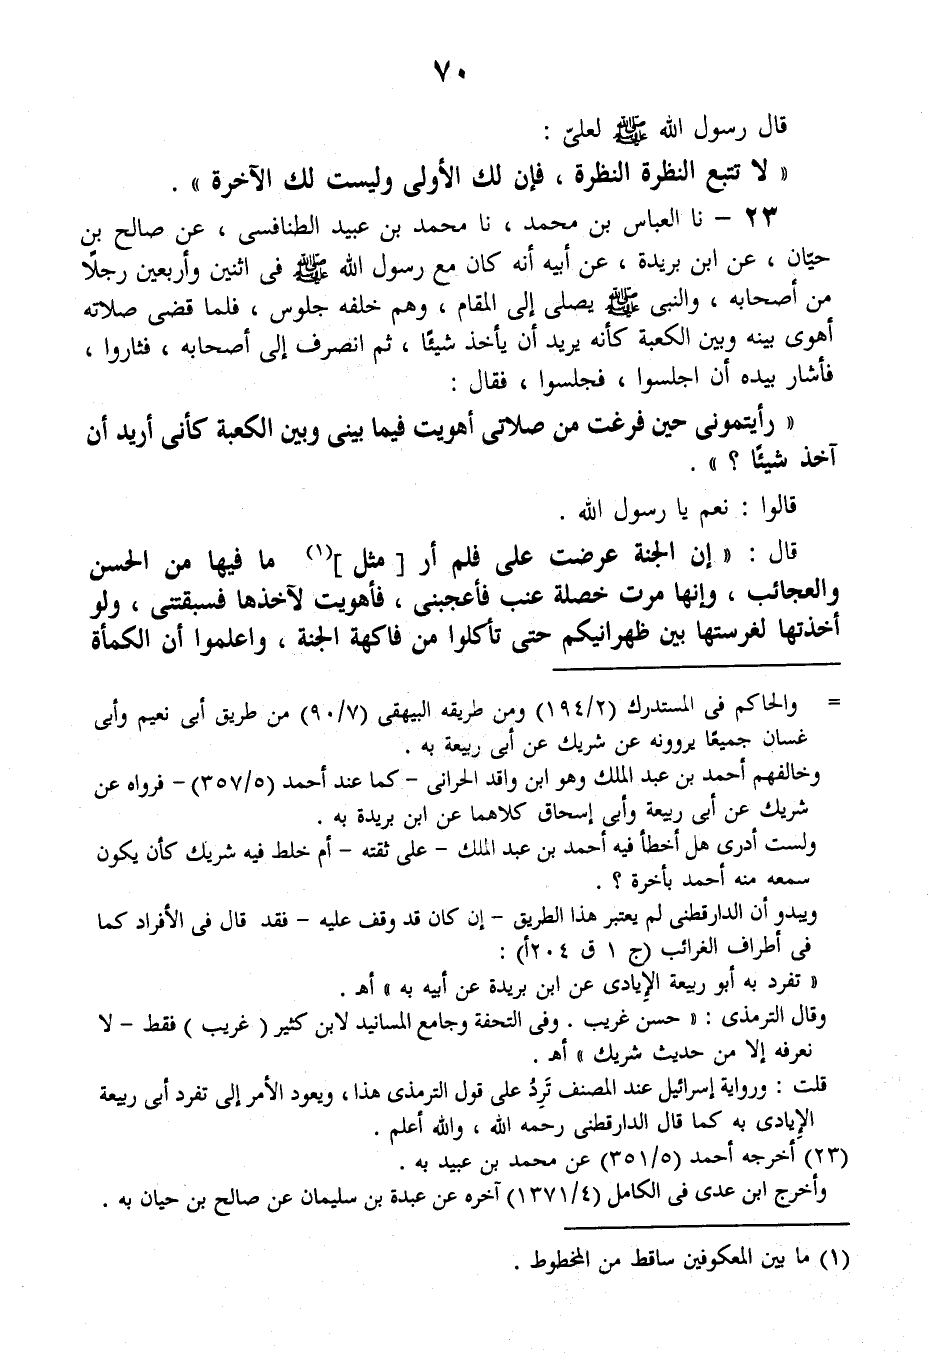 ٧٠
قال رسول الله ﷺ لعليّ :
« لا تتبع النظرة النظرة ، فإن لك الأولى وليست لك الآخرة » .
٢٣ – نا العباس بن محمد ، نا محمد بن عبيد الطنافسى ، عن صالح بن
حيّان ، عن ابن بريدة ، عن أبيه أنه كان مع رسول الله ﷺ فى اثنين وأربعين رجلًا
من أصحابه ، والنبى ﷺ يصلى إلى المقام ، وهم خلفه جلوس ، فلما قضى صلاته
أهوى بينه وبين الكعبة كأنه يريد أن يأخذ شيئًا ، ثم انصرف إلى أصحابه ، فثاروا ،
فأشار بيده أن اجلسوا ، فجلسوا ، فقال :
« رأيتمونى حين فرغت من صلاتى أهويت فيما بينى وبين الكعبة كأنى أريد أن
آخذ شيئًا ؟ » .
قالوا : نعم يا رسول الله .
قال : « إن الجنة عرضت على فلم أر [ مثل ](١) ما فيها من الحسن
والعجائب ، وإنها مرت خصلة عنب فأعجبنى ، فأهويت لآخذها فسبقتنى ، ولو
أخذتها لغرستها بين ظهرانيكم حتى تأكلوا من فاكهة الجنة ، واعلموا أن الكمأة
= والحاكم فى المستدرك (١٩٤/٢) ومن طريقه البيهقى (٩٠/٧) من طريق أبى نعيم وأبى
غسان جميعًا يروونه عن شريك عن أبى ربيعة به .
وخالفهم أحمد بن عبد الملك وهو ابن واقد الحرانى – كما عند أحمد (٣٥٧/٥) – فرواه عن
شريك عن أبى ربيعة وأبى إسحاق كلاهما عن ابن بريدة به .
ولست أدرى هل أخطأ فيه أحمد بن عبد الملك – على ثقته – أم خلط فيه شريك كأن يكون
سمعه منه أحمد بأخرة ؟ .
ويبدو أن الدارقطنى لم يعتبر هذا الطريق – إن كان قد وقف عليه – فقد قال فى الأفراد كما
فى أطراف الغرائب (ج ١ ق ٢٠٤أ) :
« تفرد به أبو ربيعة الإيادى عن ابن بريدة عن أبيه به » أهـ .
وقال الترمذى : « حسن غريب . وفى التحفة وجامع المسانيد لابن كثير ( غريب ) فقط – لا
نعرفه إلا من حديث شريك » أهـ .
قلت : ورواية إسرائيل عند المصنف تَرِدُ على قول الترمذى هذا ، ويعود الأمر إلى تفرد أبى ربيعة
الإيادى به كما قال الدارقطنى رحمه الله ، والله أعلم .
(٢٣) أخرجه أحمد (٣٥١/٥) عن محمد بن عبيد به .
وأخرج ابن عدى فى الكامل (١٣٧١/٤) آخره عن عبدة بن سليمان عن صالح بن حيان به .
(١) ما بين المعكوفين ساقط من المخطوط .